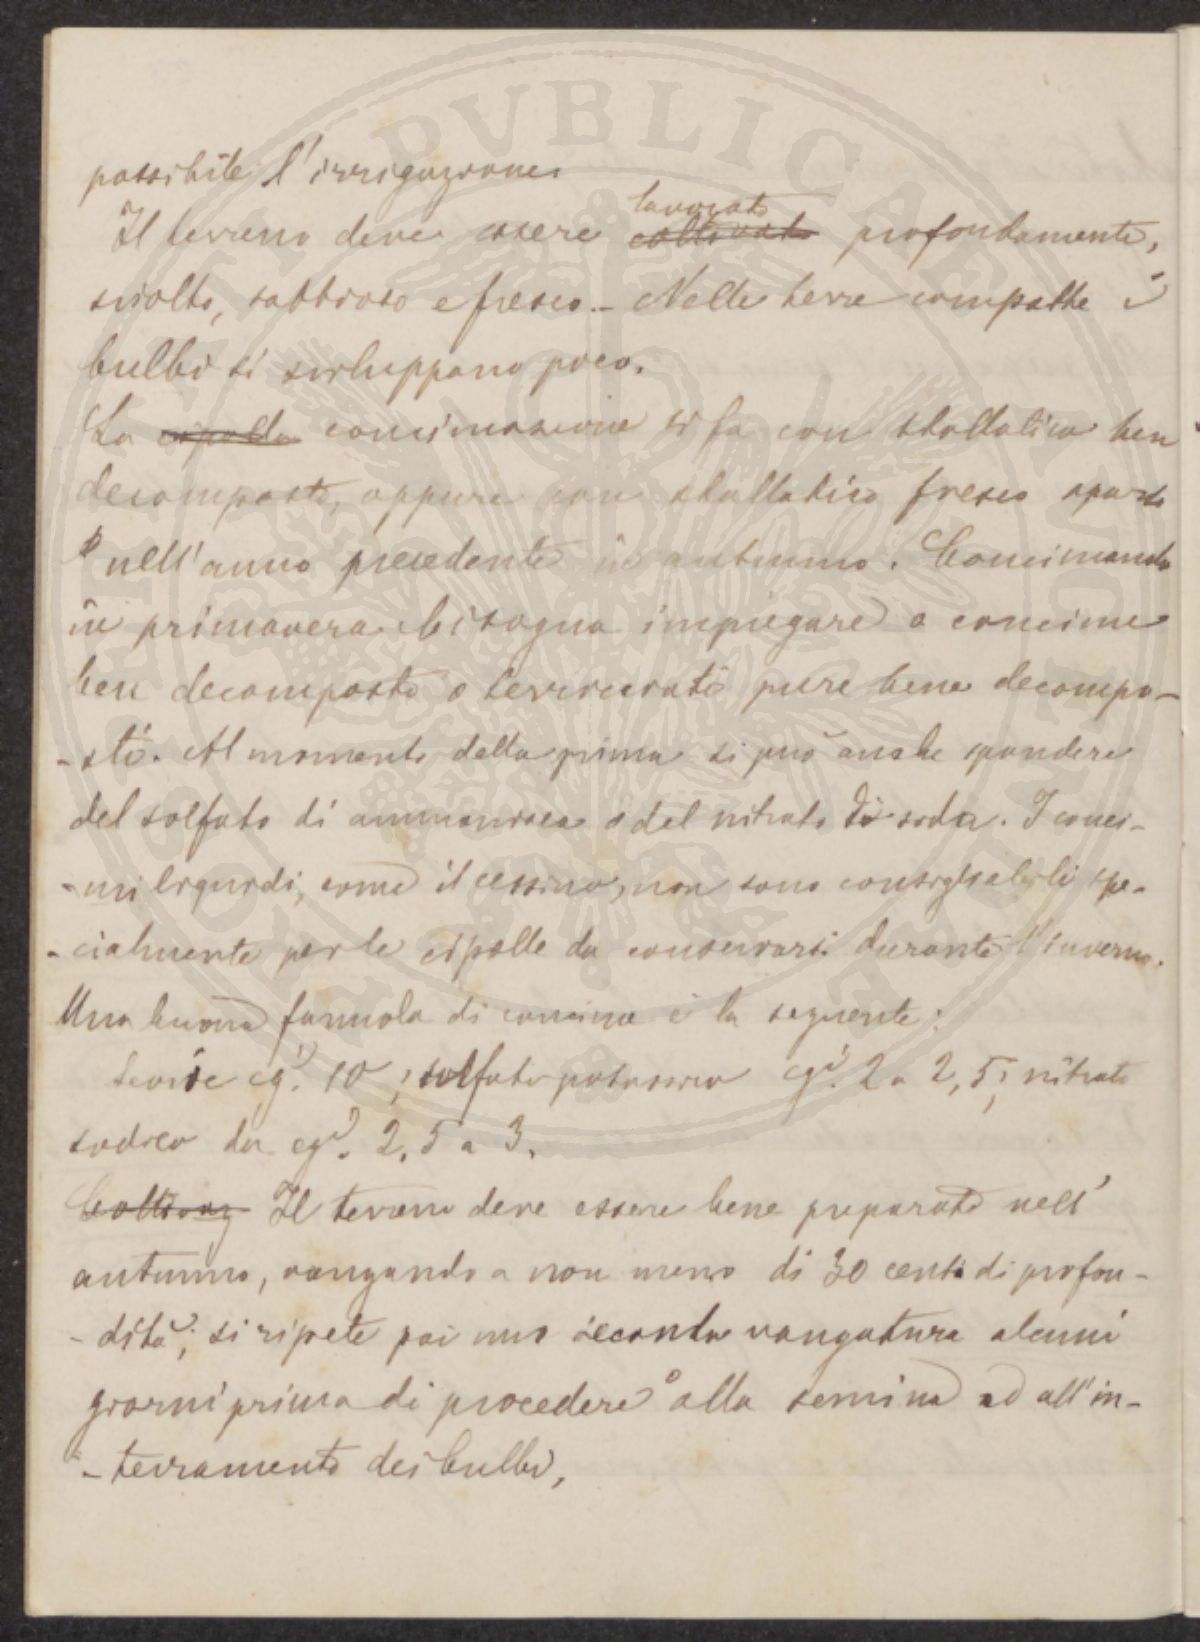 possibile l'irrigazione.
Il terreno deve essere ~~coltivato~~ lavorato profondamente,
sciolto, sabbioso e fresco. - Nelle terre compatte i
bulbi si sviluppano poco.
La ~~cipolla~~ concimazione si fa con stallatico ben
decomposto, oppure con stallatico fresco sparso
nell'anno precedente in autunno. Concimando
in primavera bisogna impiegare o concime
ben decomposto o terricciato pure bene decompo-
-sto. Al momento della prima si può anche spandere
del solfato di ammoniaca o del nitrato di soda. I conci-
-mi liquidi, come il cessino, non sono consigliabili spe-
-cialmente per le cipolle da conservarsi durante l'inverno.
Una buona formola di concime è la seguente:
Scorie cgi. 10; solfato potassico cgi. 2 a 2,5; nitrato
sodico da cgi. 2,5 a 3.
~~Coltivaz~~ Il terreno deve essere bene preparato nell'
autunno, vangando a non meno di 30 cent. di profon-
-dità; si ripete poi una seconda vangatura alcuni
giorni prima di procedere alla semina ad all'in-
-terramento dei bulbi,
PVBLICAE